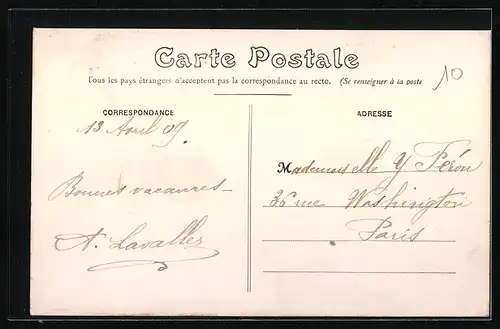 Carte Postale
Tous les pays étrangers n'acceptent pas la correspondance au recto. (Se renseigner à la poste
10
CORRESPONDANCE
ADRESSE
13 Avril 09.
Mademoiselle Y Féron
Bonnes vacances
36 rue Washington
A. Lavallez
Paris